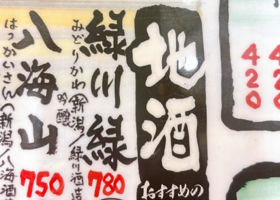 420
420
おすすめの
地酒
緑川 緑
みどりかわ(新潟/緑川酒造
吟醸
780
八海山
はっかいさん(新潟/八海酒造
750